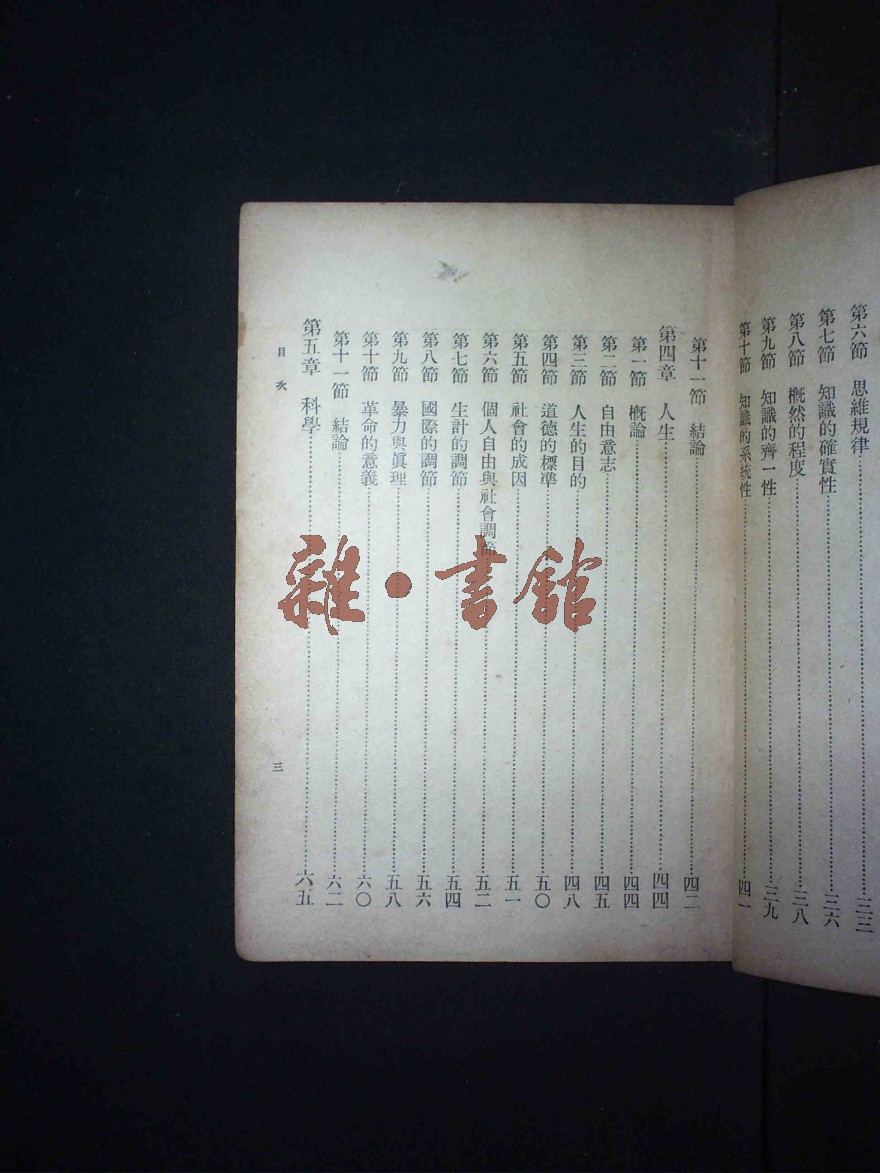 第六節 思維規律……三三
第七節 知識的確實性……三六
第八節 概然的程度……三八
第九節 知識的齊一性……三九
第十節 知識的系統性……四一
第十一節 結論……四二
第四章 人生……四四
第一節 概論……四四
第二節 自由意志……四五
第三節 人生的目的……四八
第四節 道德的標準……五〇
第五節 社會的成因……五一
第六節 個人自由與社會調節……五二
第七節 生計的調節……五四
第八節 國際的調節……五六
第九節 暴力與眞理……五八
第十節 革命的意義……六〇
第十一節 結論……六二
第五章 科學……六五
目次
三
雜·書館